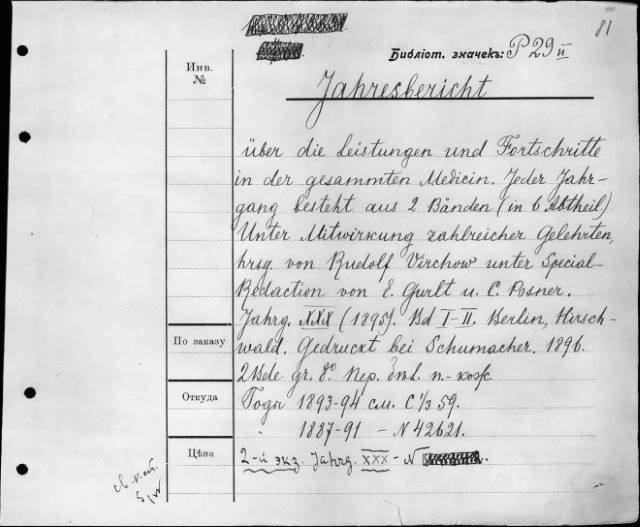 81
Библіот. значекъ: P 29 II
Инв.
№
Jahresbericht
über die Leistungen und Fortschritte
in der gesammten Medicin. Jeder Jahr-
gang besteht aus 2 Bänden (in 6 Abtheil)
Unter Mitwirkung zahlreicher Gelehrten,
hrsg. von Rudolf Virchow unter Special-
Redaction von E. Gurlt u. C. Posner.
Jahrg. XXX (1895). Bd I-II. Berlin, Hirsch-
По заказу
wald. Gedruckt bei Schumacher. 1896.
2 Bde gr. 8° п.-кож
Откуда
Годы 1893-94 см. С 1/3 59.
" 1887-91 - N 42621.
Цѣна
2-й экз. Jahrg. XXX - N